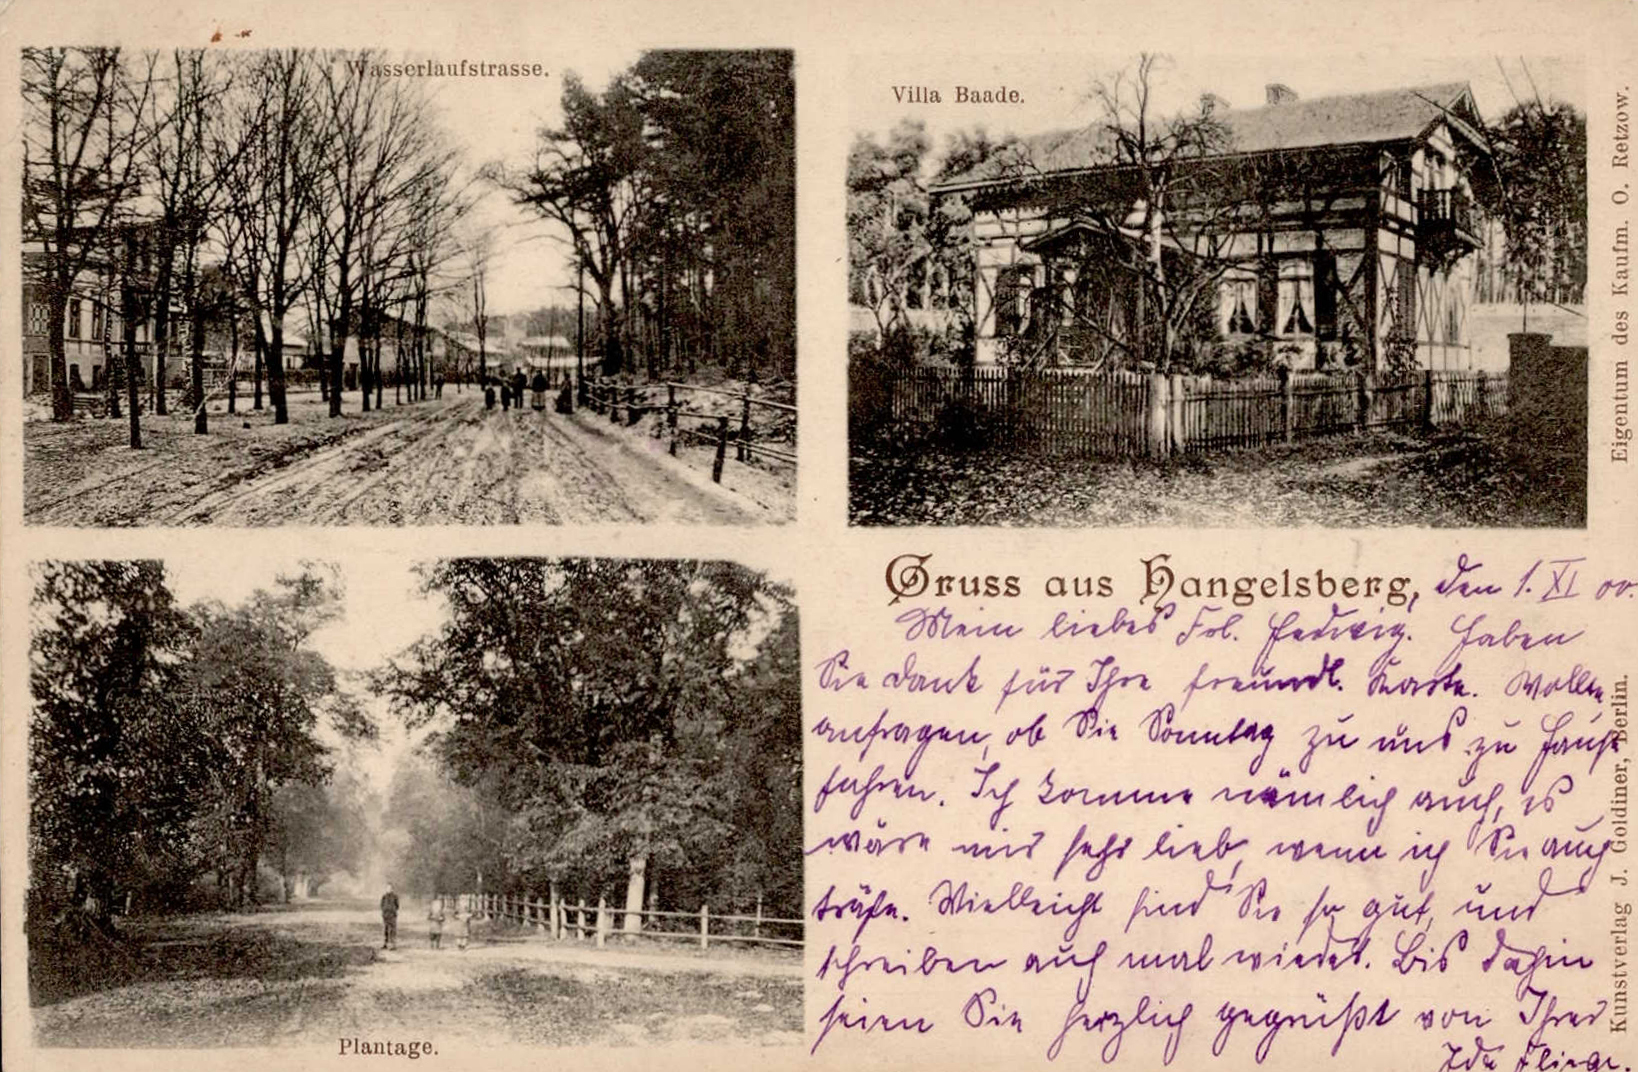 Wasserlaufstrasse.
Villa Baade.
Plantage.
Gruss aus Hangelsberg, den 1. XI 00.
Mein liebes Frl. Hedwig. Haben
Sie Dank für Ihre freundl. Karte. Wollte
anfragen, ob Sie Sonntag zu uns zu Hause
fahren. Ich komme nämlich auch, es
wäre mir sehr lieb, wenn ich Sie auch
träfe. Vielleicht sind Sie so gut, und
schreiben auch mal wieder. Bis dahin
seien Sie herzlich gegrüßt von Ihrer
Ida
Eigentum des Kaufm. O. Retzow.
Kunstverlag J. Goldiner, Berlin.